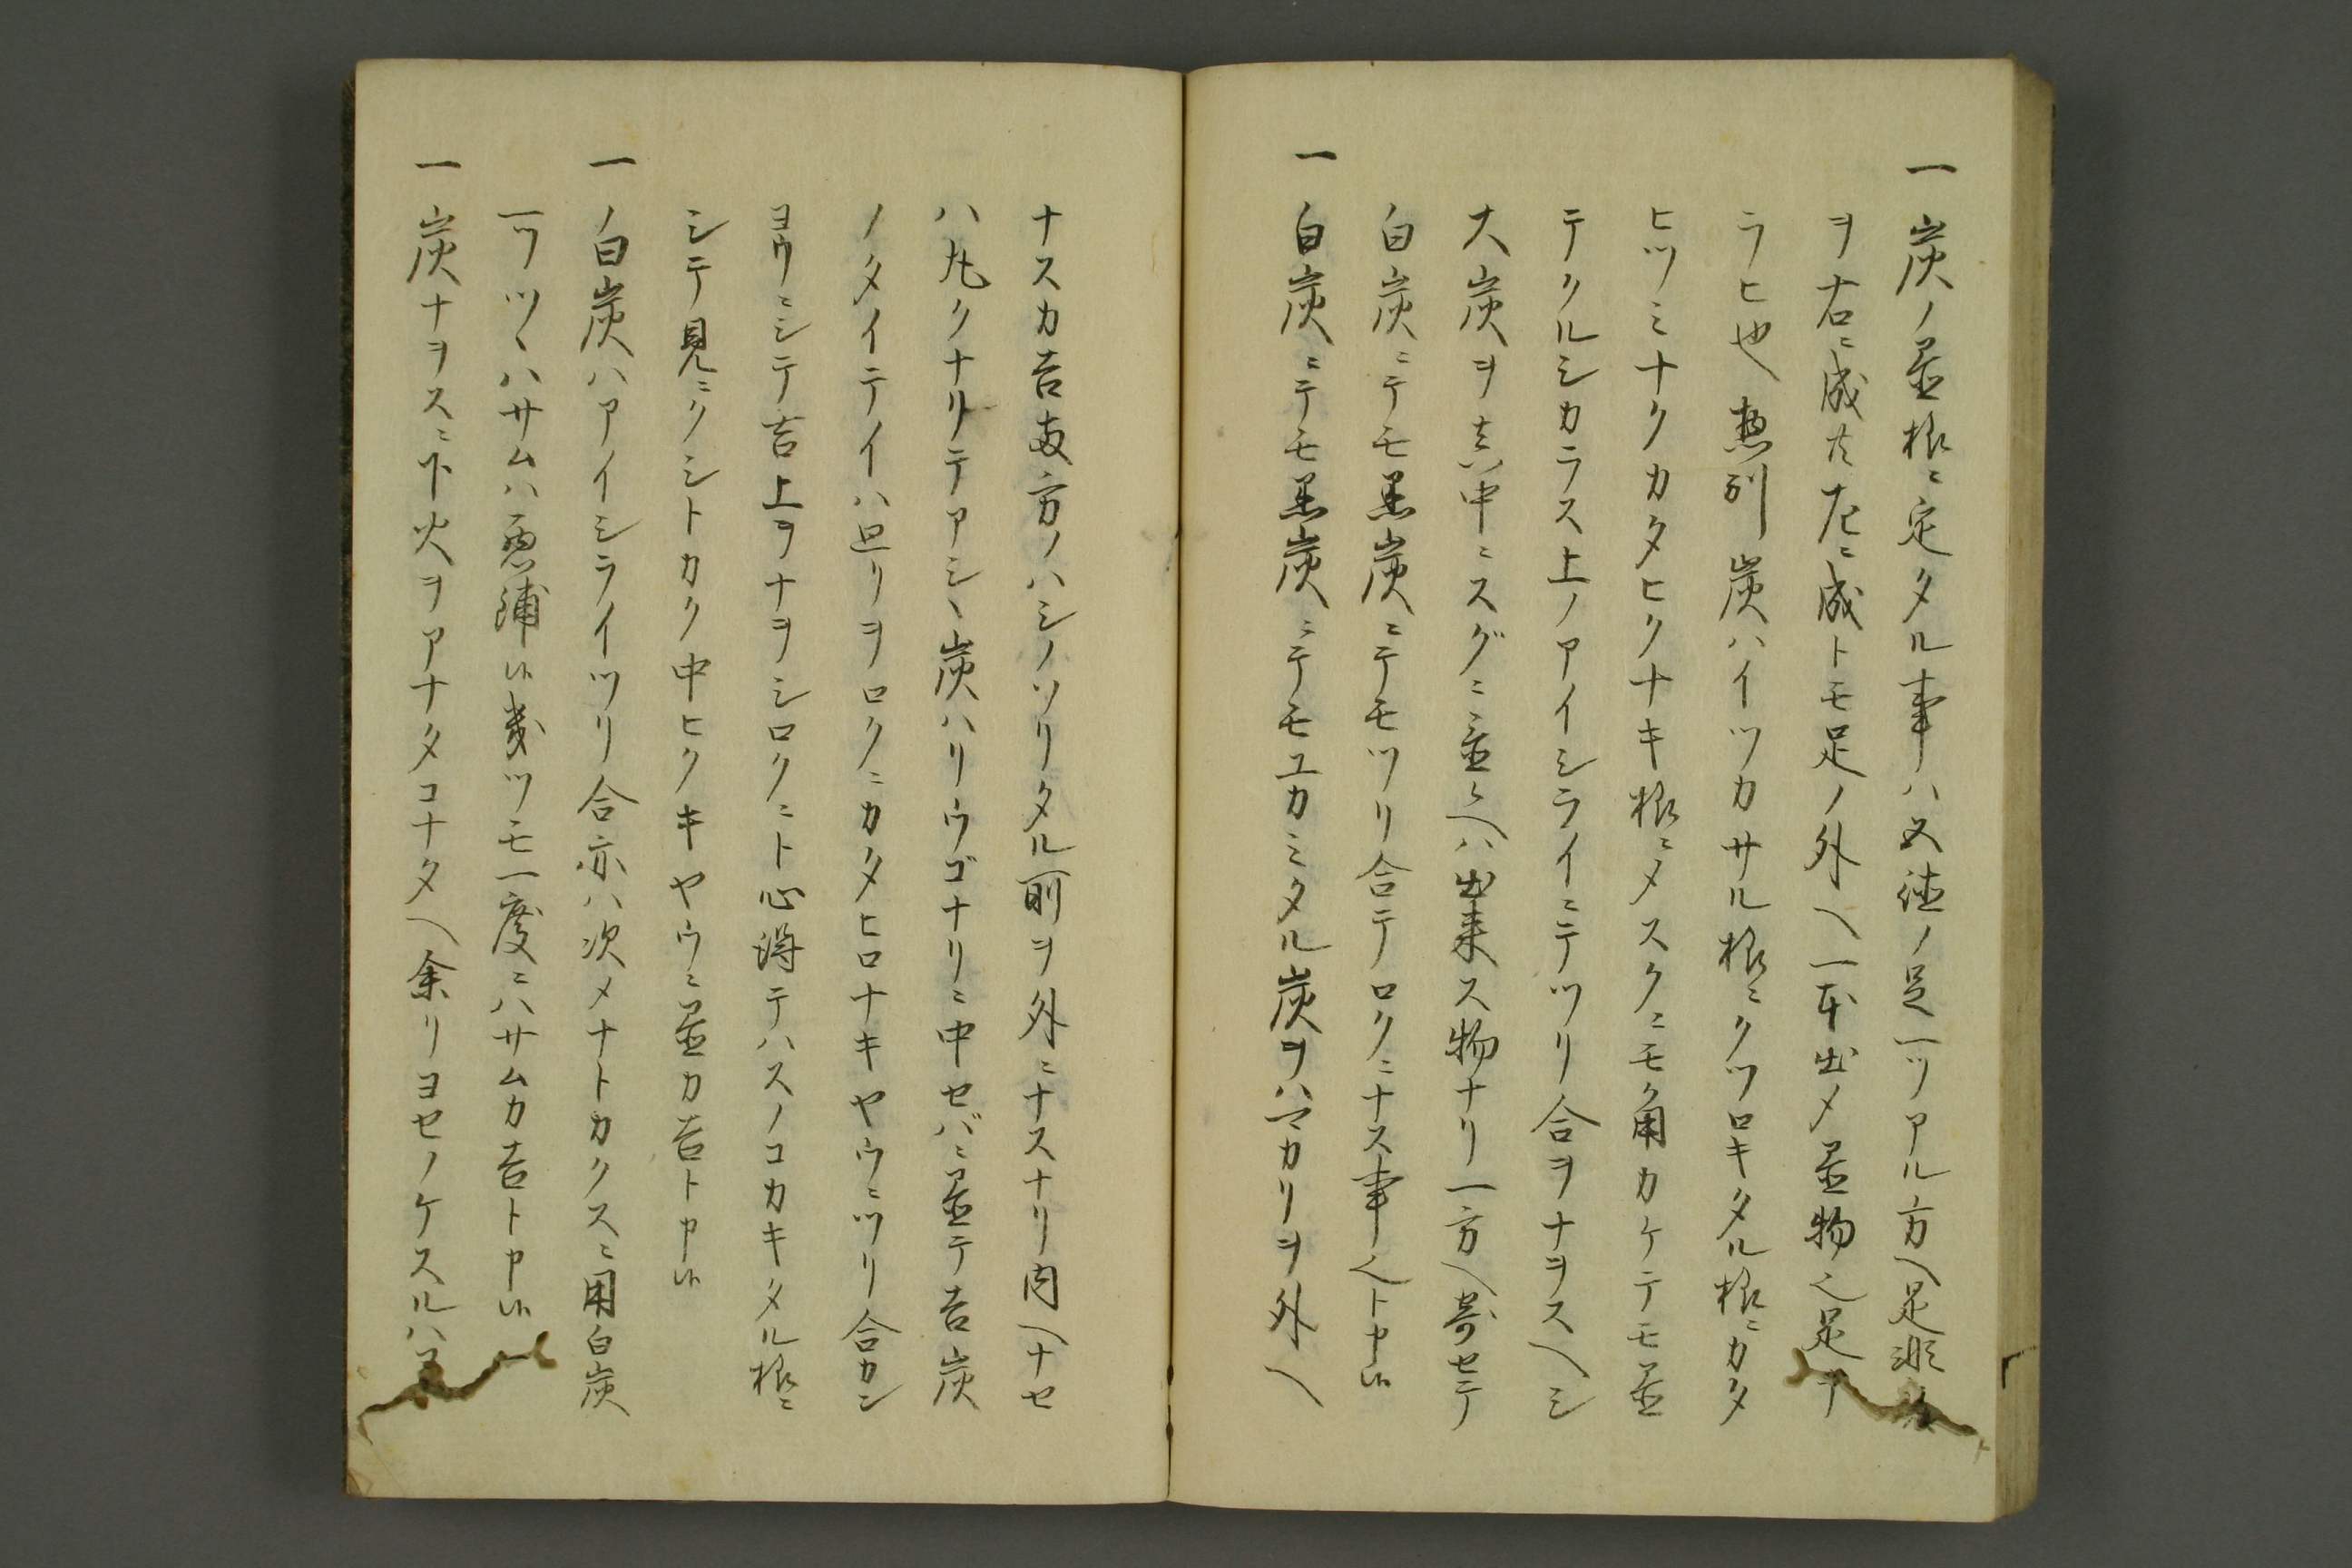 一 炭ノ置様ニ定タル事ハ五徳ノ足一ツアル方ヘ足
ヲ右ニ成共左ニ成トモ足ノ外ヘ一本出メ置物也足ヲ
ラヒ也 惣別炭ハイツカサル様ニクツロキタル様ニカタ
ヒツミナクカタヒクナキ様ニメスクニモ角カケテモ置
テクルシカラス上ノアイシライニテツリ合ヲナヲスヘシ
大炭ヲ真中ニスグニ置ヘハ出来ス物ナリ一方ヘ寄セテ
白炭ニテモ黒炭ニテモツリ合テロクニナス事也ト申候
一 白炭ニテモ黒炭ニテモユカミタル炭ヲハマカリヲ外ヘ
ナスカ吉両方ノハシノソリタル前ヲ外ニナスナリ内ヘナセ
ハ丸クナリテアシヽ炭ハリウゴナリニ中セバニ置テ吉炭
ノタイテイハ廻リヲロクニカタヒロナキヤウニツリ合カン
ヨウニシテ吉上ヲナヲシロクニト心得テハスノコカキタル様ニ
シテ見ニクシトカク中ヒクキヤウニ置カ吉ト申候
一 白炭ハアイシライツリ合亦ハ次メナトカクスニ用白炭
一ツツヽハサムハ悪敷候幾ツモ一度ニハサムカ吉ト申候
一 炭ナヲスニ下火ヲアナタコナタヘ余リヨセノケスルハ